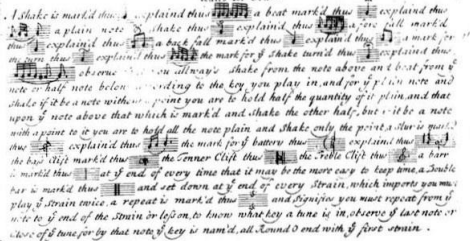 A Shake is mark'd thus explain'd thus a beat mark'd thus explain'd thus
a plain note & shake thus explain'd thus a fore fall mark'd
thus explain'd thus a back fall mark'd thus explain'd thus a mark for
turn thus explain'd thus the mark for ẏ Shake turn'd thus explain'd thus
observe that you allway's shake from the note above and beat from ẏ
note or half note below according to the key you play in, and for ẏ plain note and
shake if it be a note without a point you are to hold half the quantity of it plain, and that
upon ẏ note above that which is mark'd and shake the other half, but if it be a note
with a point to it you are to hold all the note plain and shake only the point, a slur is mark'd
thus explain'd thus the mark for ẏ battery thus explain'd thus
the bass Clift mark'd thus the Tenner Clift thus the Treble Clift thus a barr
is mark'd thus at ẏ end of every time that it may be the more easy to keep time, a Double
bar is mark'd thus and set down at ẏ end of every Strain, which imports you must
play ẏ Strain twice. a repeat is mark'd thus and signifies you must repeat from ẏ
note to ẏ end of the Strain or lesson, to know what key a tune is in, observe ẏ last note or
Close of ẏ tune for by that note ẏ key is nam'd, all Round O end with ẏ first strain.